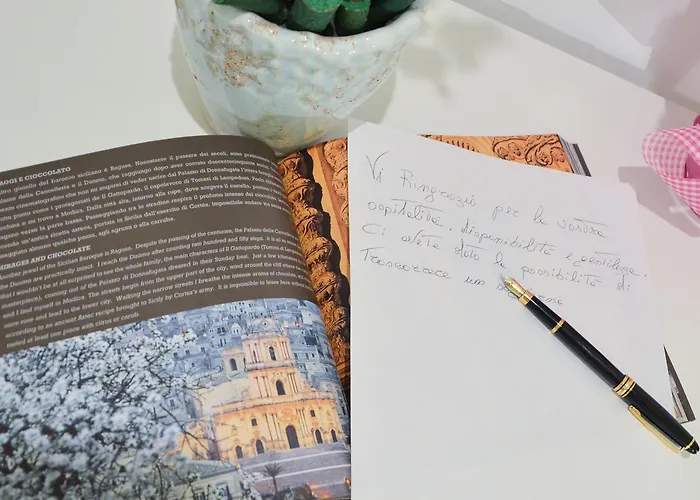 AGGI E CIOCCOLATO
gioiello del barocco siciliano è Ragusa. Nonostante il passare dei secoli, sono
della Cancelleria e il Duomo, che raggiungo dopo aver contato duecentocinquanta
non mi stupirei di veder uscire dal Palazzo di Donnafugata l'intera
punto come i protagonisti de il Gattopardo, il capolavoro di Tomasi di Lampedusa. Pochi
e mi trovo a Modica. Dalla città alta, intorno alla rupe, dove sorgeva il castello,
verso la parte bassa. Passeggiando tra le stradine respiro il profumo intenso del
un'antica ricetta azteca, portata in Sicilia dall'esercito di Cortés. Impossibile andare via
assaggiato almeno qualche pezzo, agli agrumi o alla carruba.
MIRAGES AND CHOCOLATE
jewel of the Sicilian Baroque is Ragusa. Despite the passing of the centuries, the Palazzo della
Duomo are practically intact. I reach the Duomo after counting two hundred and fifty steps. It is all so
that I wouldn't be at all surprised to see the whole family, the main characters of Il Gattopardo (Tomasi di
masterpiece), coming out of the Palazzo di Donnafugata dressed in their Sunday best. Just a few
and I find myself in Modica. The streets begin from the upper part of the city, wind around the cliff where
once rose and lead to the lower city. Walking the narrow streets I breathe the intense aroma of chocolate
according to an ancient Aztec recipe brought to Sicily by Cortes's army. It is impossible to leave here
tasted at least one piece with citrus or carob.
Vi Ringrazio per la vostra
ospitalità, disponibilità e gentilezza.
Ci avete dato la possibilità di
Trascorrere un